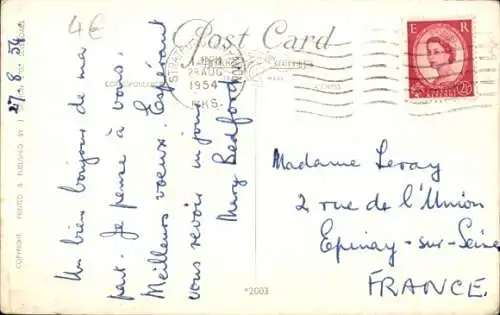 4€
Post Card
CORRESPONDENCE
27.8.54
Un bien bonjour de ma
part. Je pense à vous.
Meilleurs voeux. Espérant
vous revoir un jour
Mary Bedford
28 AUG
1954
E R
2½
Madame Leroy
2 rue de l'Union
Epinay-sur-Seine
FRANCE.
*2003
COPYRIGHT. PRINTED & PUBLISHED BY